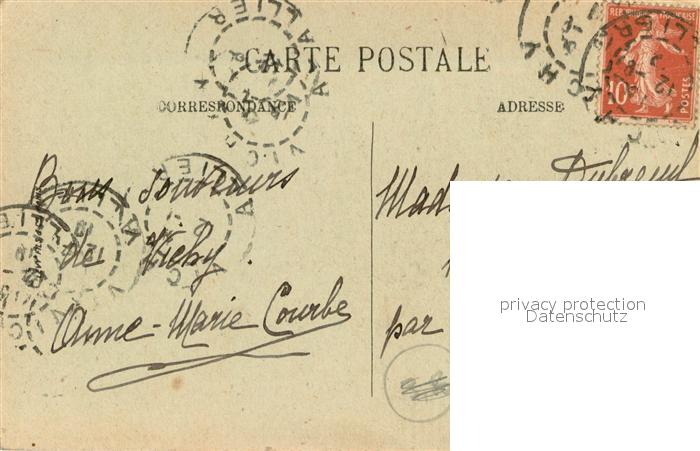 CARTE POSTALE
CORRESPONDANCE
ADRESSE
RÉPUBLIQUE FRANÇAISE
10
POSTES
VICHY
ALLIER
Bons Souvenirs
de Vichy.
Anne-Marie Courbe
Dubreuil
par
privacy protection
Datenschutz